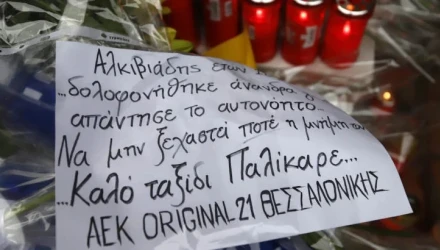 Αλκιβιάδης ετών
...δολοφονήθηκε άνανδρα
απάντησε το αυτονόητο...
Να μην ξεχαστά ποτέ η μνήμη
...Καλό ταξίδι Παλίκαρε...
ΑΕΚ ORIGINAL 21 ΘΕΣΣΑΛΟΝΙΚΗΣ